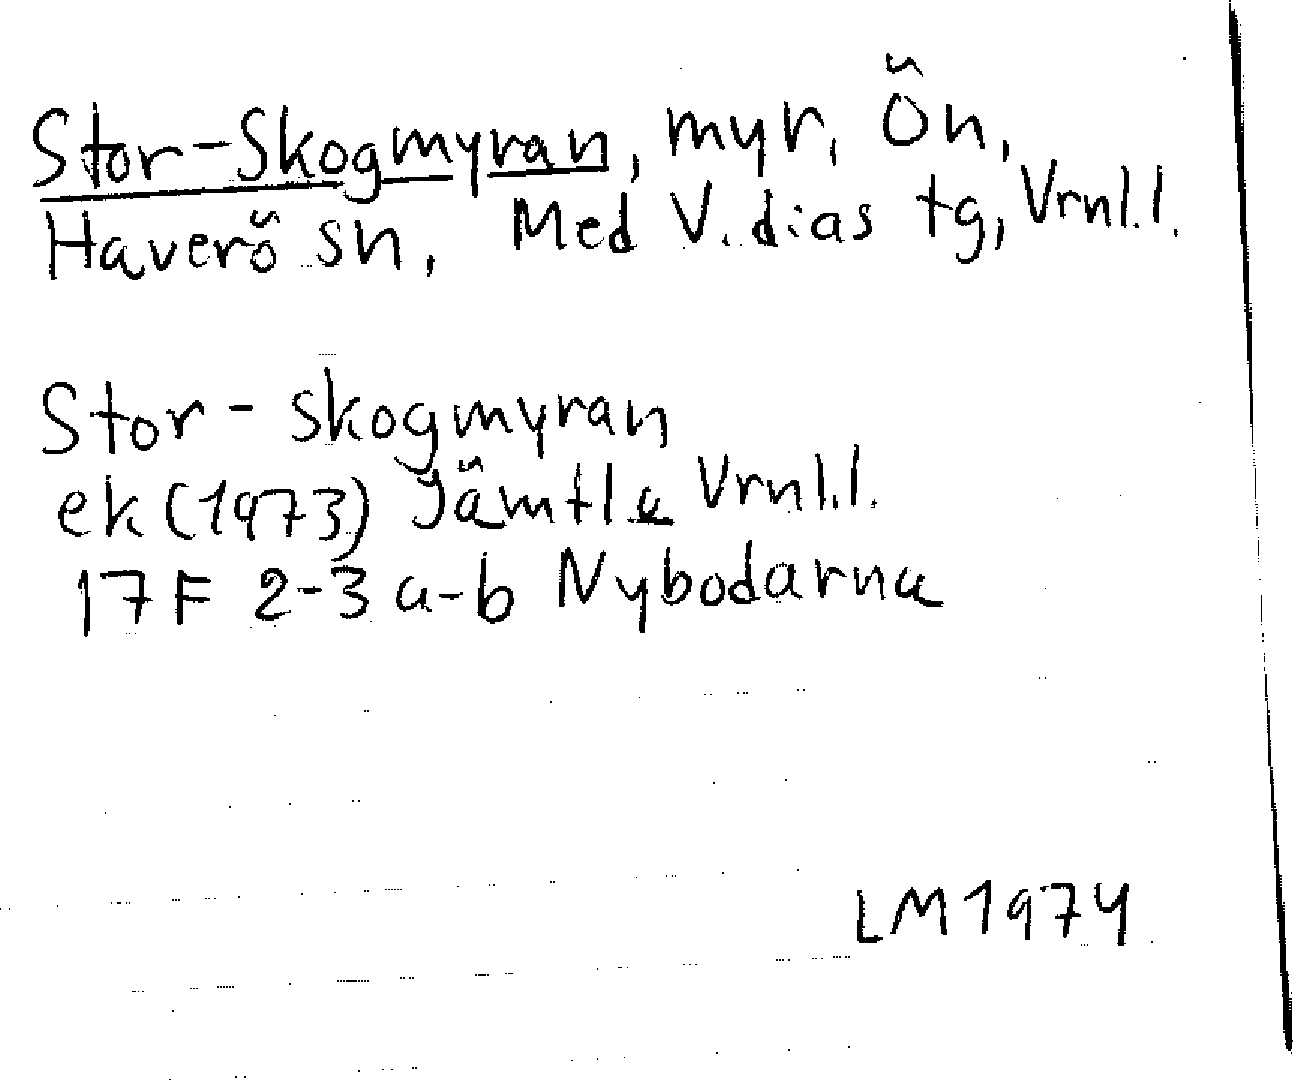 Stor-Skogmyran, myr, Ön,
Haverö sn, Med V. dias tg, Vrnl.l.
Stor-skogmyran
ek (1973) Jämtla Vrnl.l.
17F 2-3 a-b Nybodarna
LM 1974